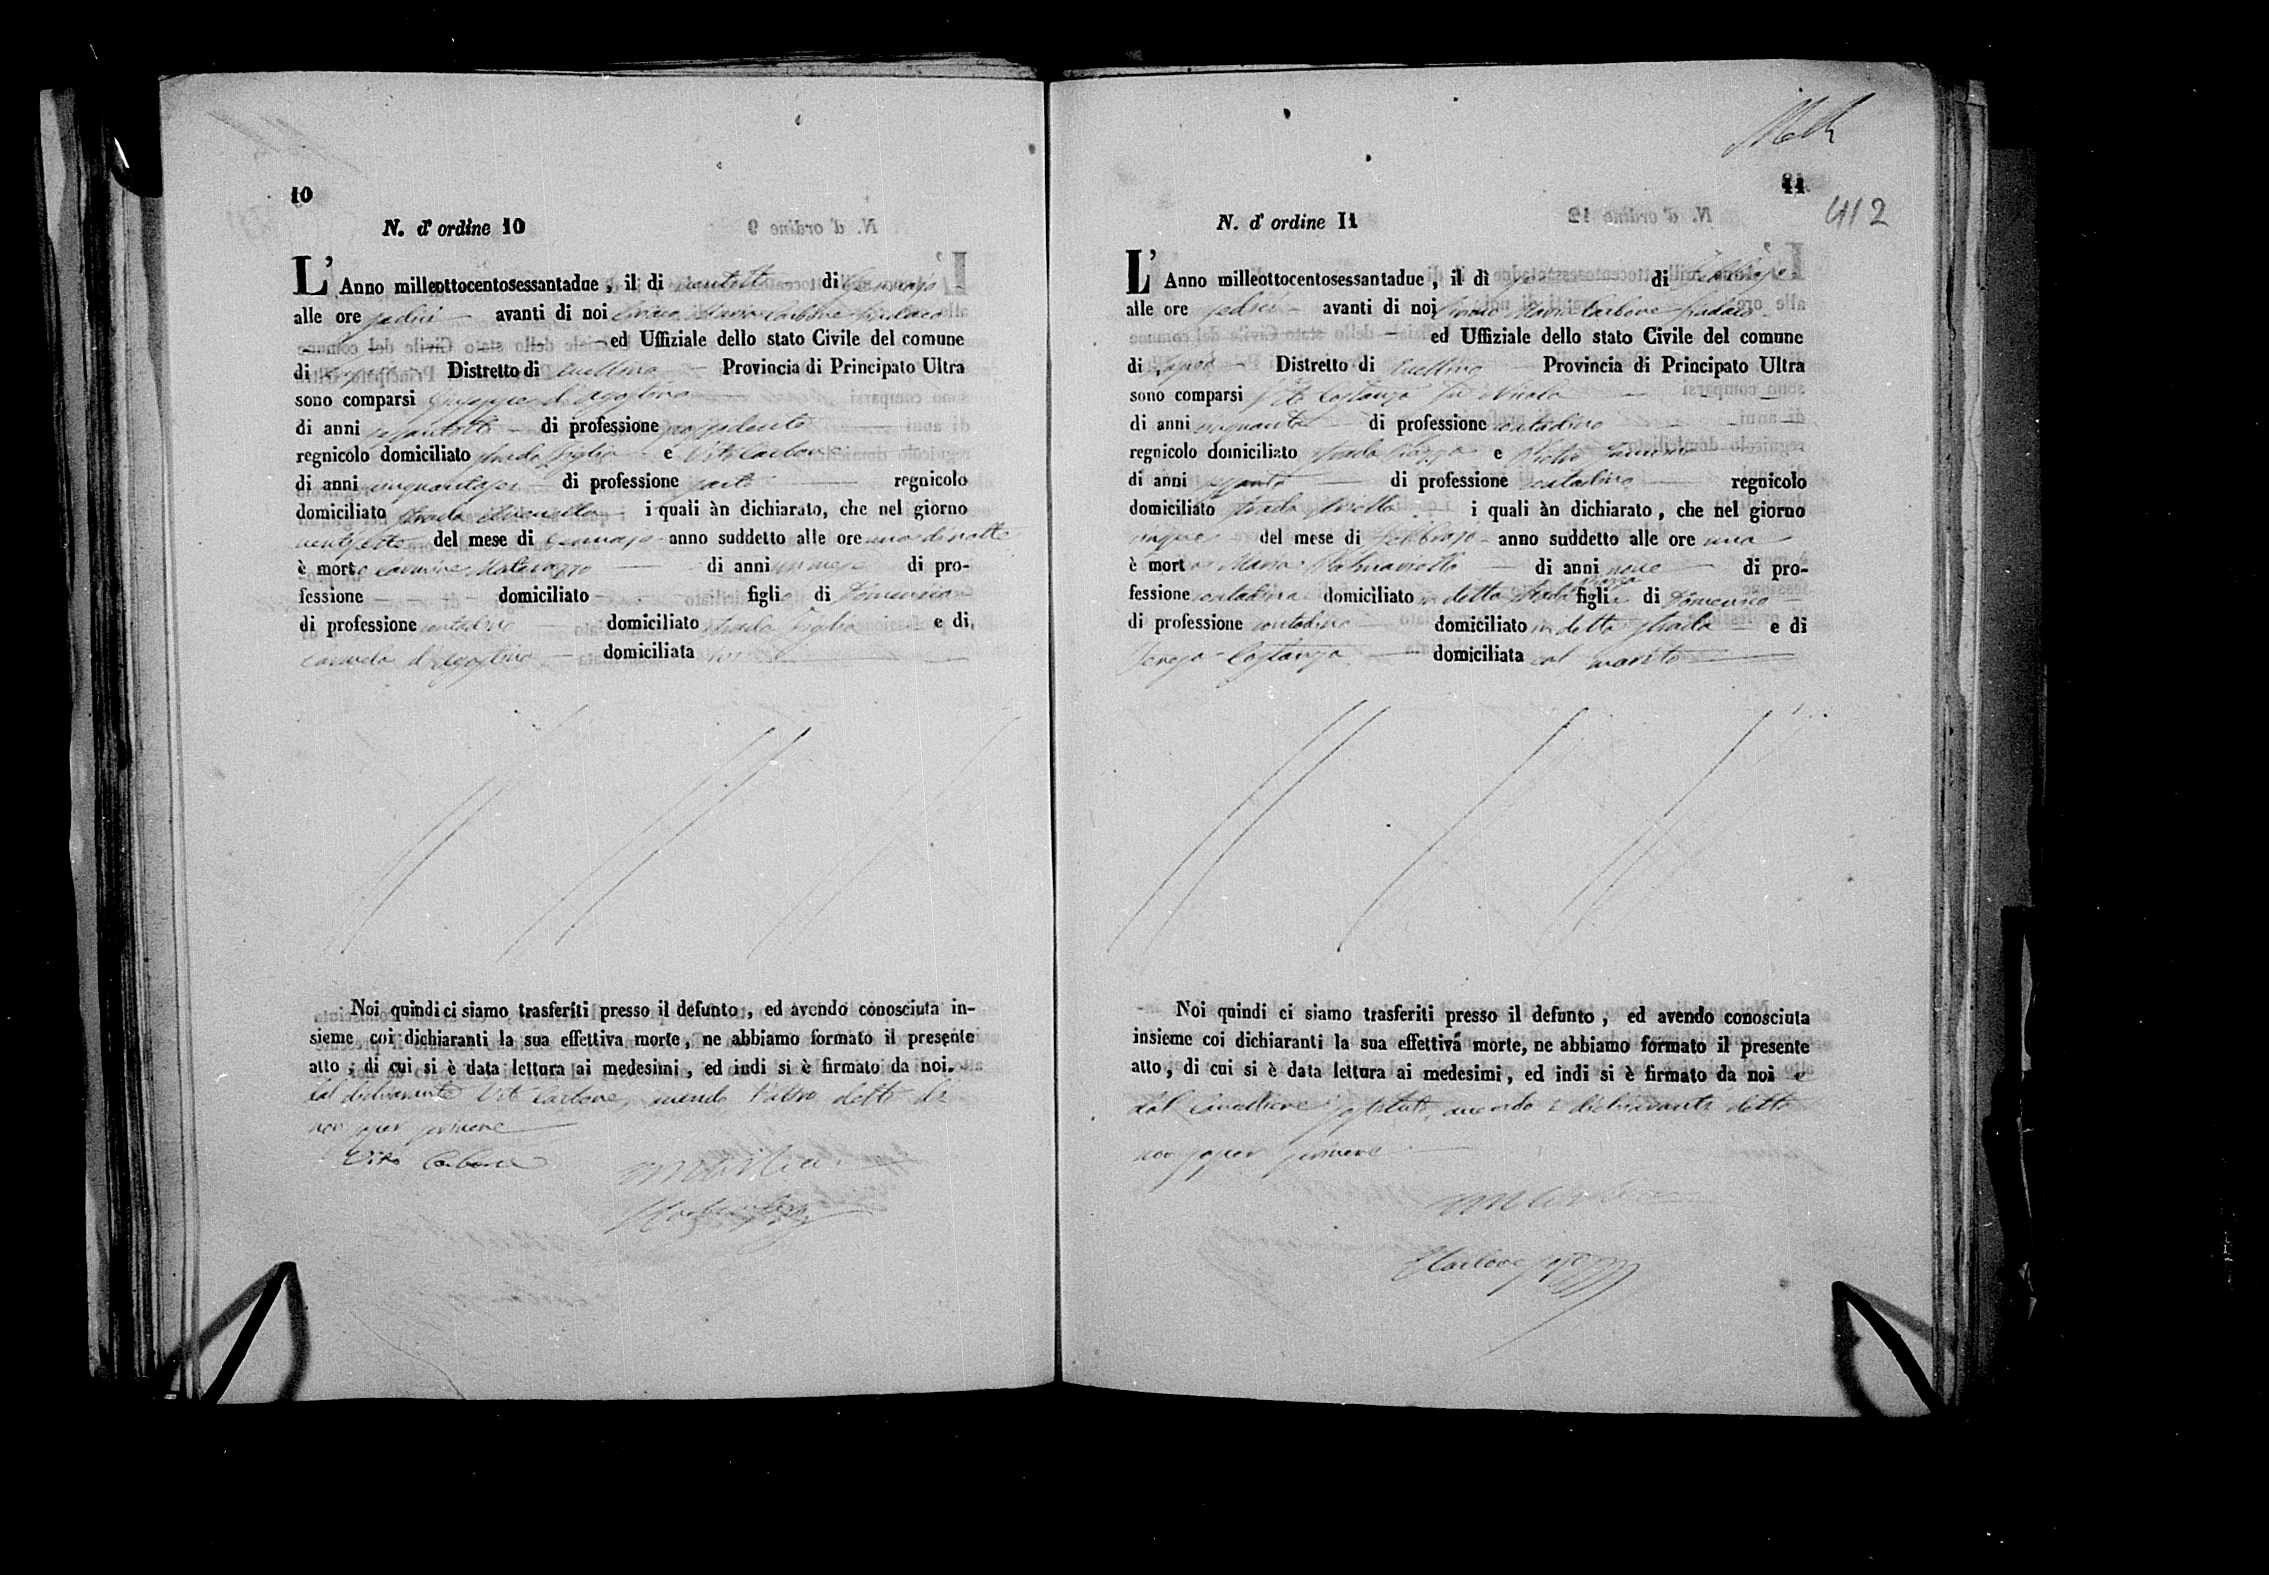 10
N. d' ordine 10
L' Anno milleottocentosessantadue, il di ventotto di Gennajo
alle ore sedici avanti di noi Maria Carbone Sindaco
ed Uffiziale dello stato Civile del comune
di Distretto di Avellino Provincia di Principato Ultra
sono comparsi Giuseppe d'Agostino
di anni di professione possidente
regnicolo domiciliato strada e Vito Carbone
di anni cinquantasei di professione sarto regnicolo
domiciliato strada i quali àn dichiarato, che nel giorno
del mese di Gennajo anno suddetto alle ore una di notte
è morto Carmine Materazzo di anni un mese di pro-
fessione domiciliato figlio di Domenico
di professione contadino domiciliato strada e di
Carmela d'Agostino domiciliata ivi
Noi quindi ci siamo trasferiti presso il defunto, ed avendo conosciuta in-
sieme coi dichiaranti la sua effettiva morte, ne abbiamo formato il presente
atto, di cui si è data lettura ai medesimi, ed indi si è firmato da noi
dal dichiarante Vito Carbone, avendo l'altro detto di
non saper scrivere
Vito Carbone
11
412
N. d' ordine 11
L' Anno milleottocentosessantadue, il dì sei di Febbrajo
alle ore sedici avanti di noi Maria Carbone Sindaco
ed Uffiziale dello stato Civile del comune
di Distretto di Avellino Provincia di Principato Ultra
sono comparsi Vito Costanza fu Nicola
di anni cinquanta di professione contadino
regnicolo domiciliato strada Piazza e Pietro
di anni di professione contadino regnicolo
domiciliato strada i quali àn dichiarato, che nel giorno
cinque del mese di Febbrajo anno suddetto alle ore una
è morta Maria di anni nove di pro-
fessione contadina domiciliato in detta strada Piazza figlia di Domenico
di professione contadino domiciliato in detta strada e di
Teresa Costanza domiciliata col marito
Noi quindi ci siamo trasferiti presso il defunto, ed avendo conosciuta
insieme coi dichiaranti la sua effettiva morte, ne abbiamo formato il presente
atto, di cui si è data lettura ai medesimi, ed indi si è firmato da noi e
dal Cancelliere sostituto, avendo i dichiaranti detto
non saper scrivere